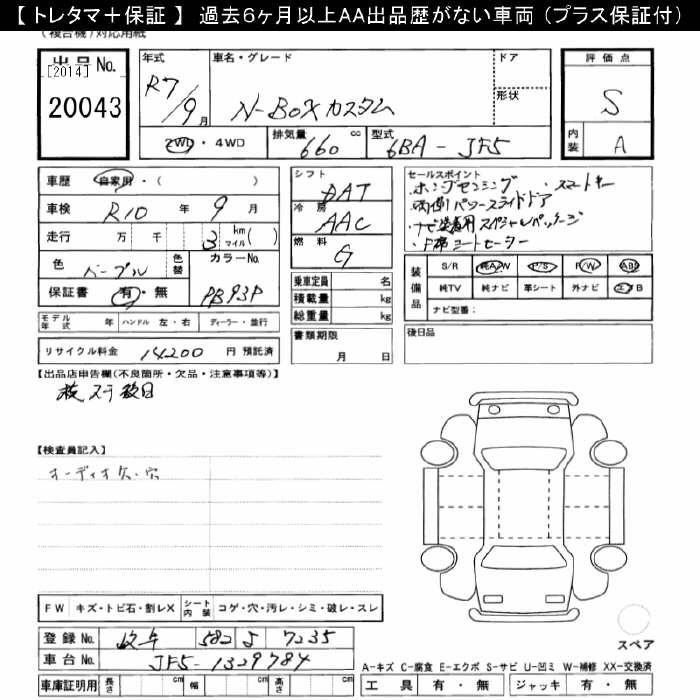 【 トレタマ＋保証 】 過去６ヶ月以上ＡＡ出品歴がない車両（プラス保証付）
(複合機)対応用紙
出品No.
[2014]
20043
年式 R7/9月
車名・グレード N-BOXカスタム
ドア
形状
2WD・4WD
排気量 660 cc
型式 6BA - JF5
評価点
S
内装 A
車歴 自家用・( )
車検 R10 年 9 月
走行 万 千 3 km マイル( )
色 パープル 色替
カラーNo. PB93P
保証書 有・無
モデル年式 年 ハンドル 左・右 ディーラー・並行
リサイクル料金 14200 円 預託済
シフト DAT
冷房 AAC
燃料 G
乗車定員 名
積載量 kg
総重量 kg
書類期限
月 日
セールスポイント
・ホンダセンシング ・スマートキー
・両側パワースライドドア
・ナビ装着用スペシャルパッケージ
・F席シートヒーター
装備品
S/R 純A/W P/S P/W ABS
純TV 純ナビ 革シート 外ナビ エアB
ナビ型番：
後日品
【出品店申告欄(不良箇所・欠品・注意事項等)】
検ステ後日
【検査員記入】
オーディオ欠・穴
FW キズ・トビ石・割レX シート内装 コゲ・穴・汚レ・シミ・破レ・スレ
登録No. 岐阜 582 よ 7235
車台No. JF5-1329784
車庫証明用 長さ cm 幅 cm 高さ cm
スペア
A-キズ C-腐食 E-エクボ S-サビ U-凹ミ W-補修 XX-交換済
工具 有・無 ジャッキ 有・無